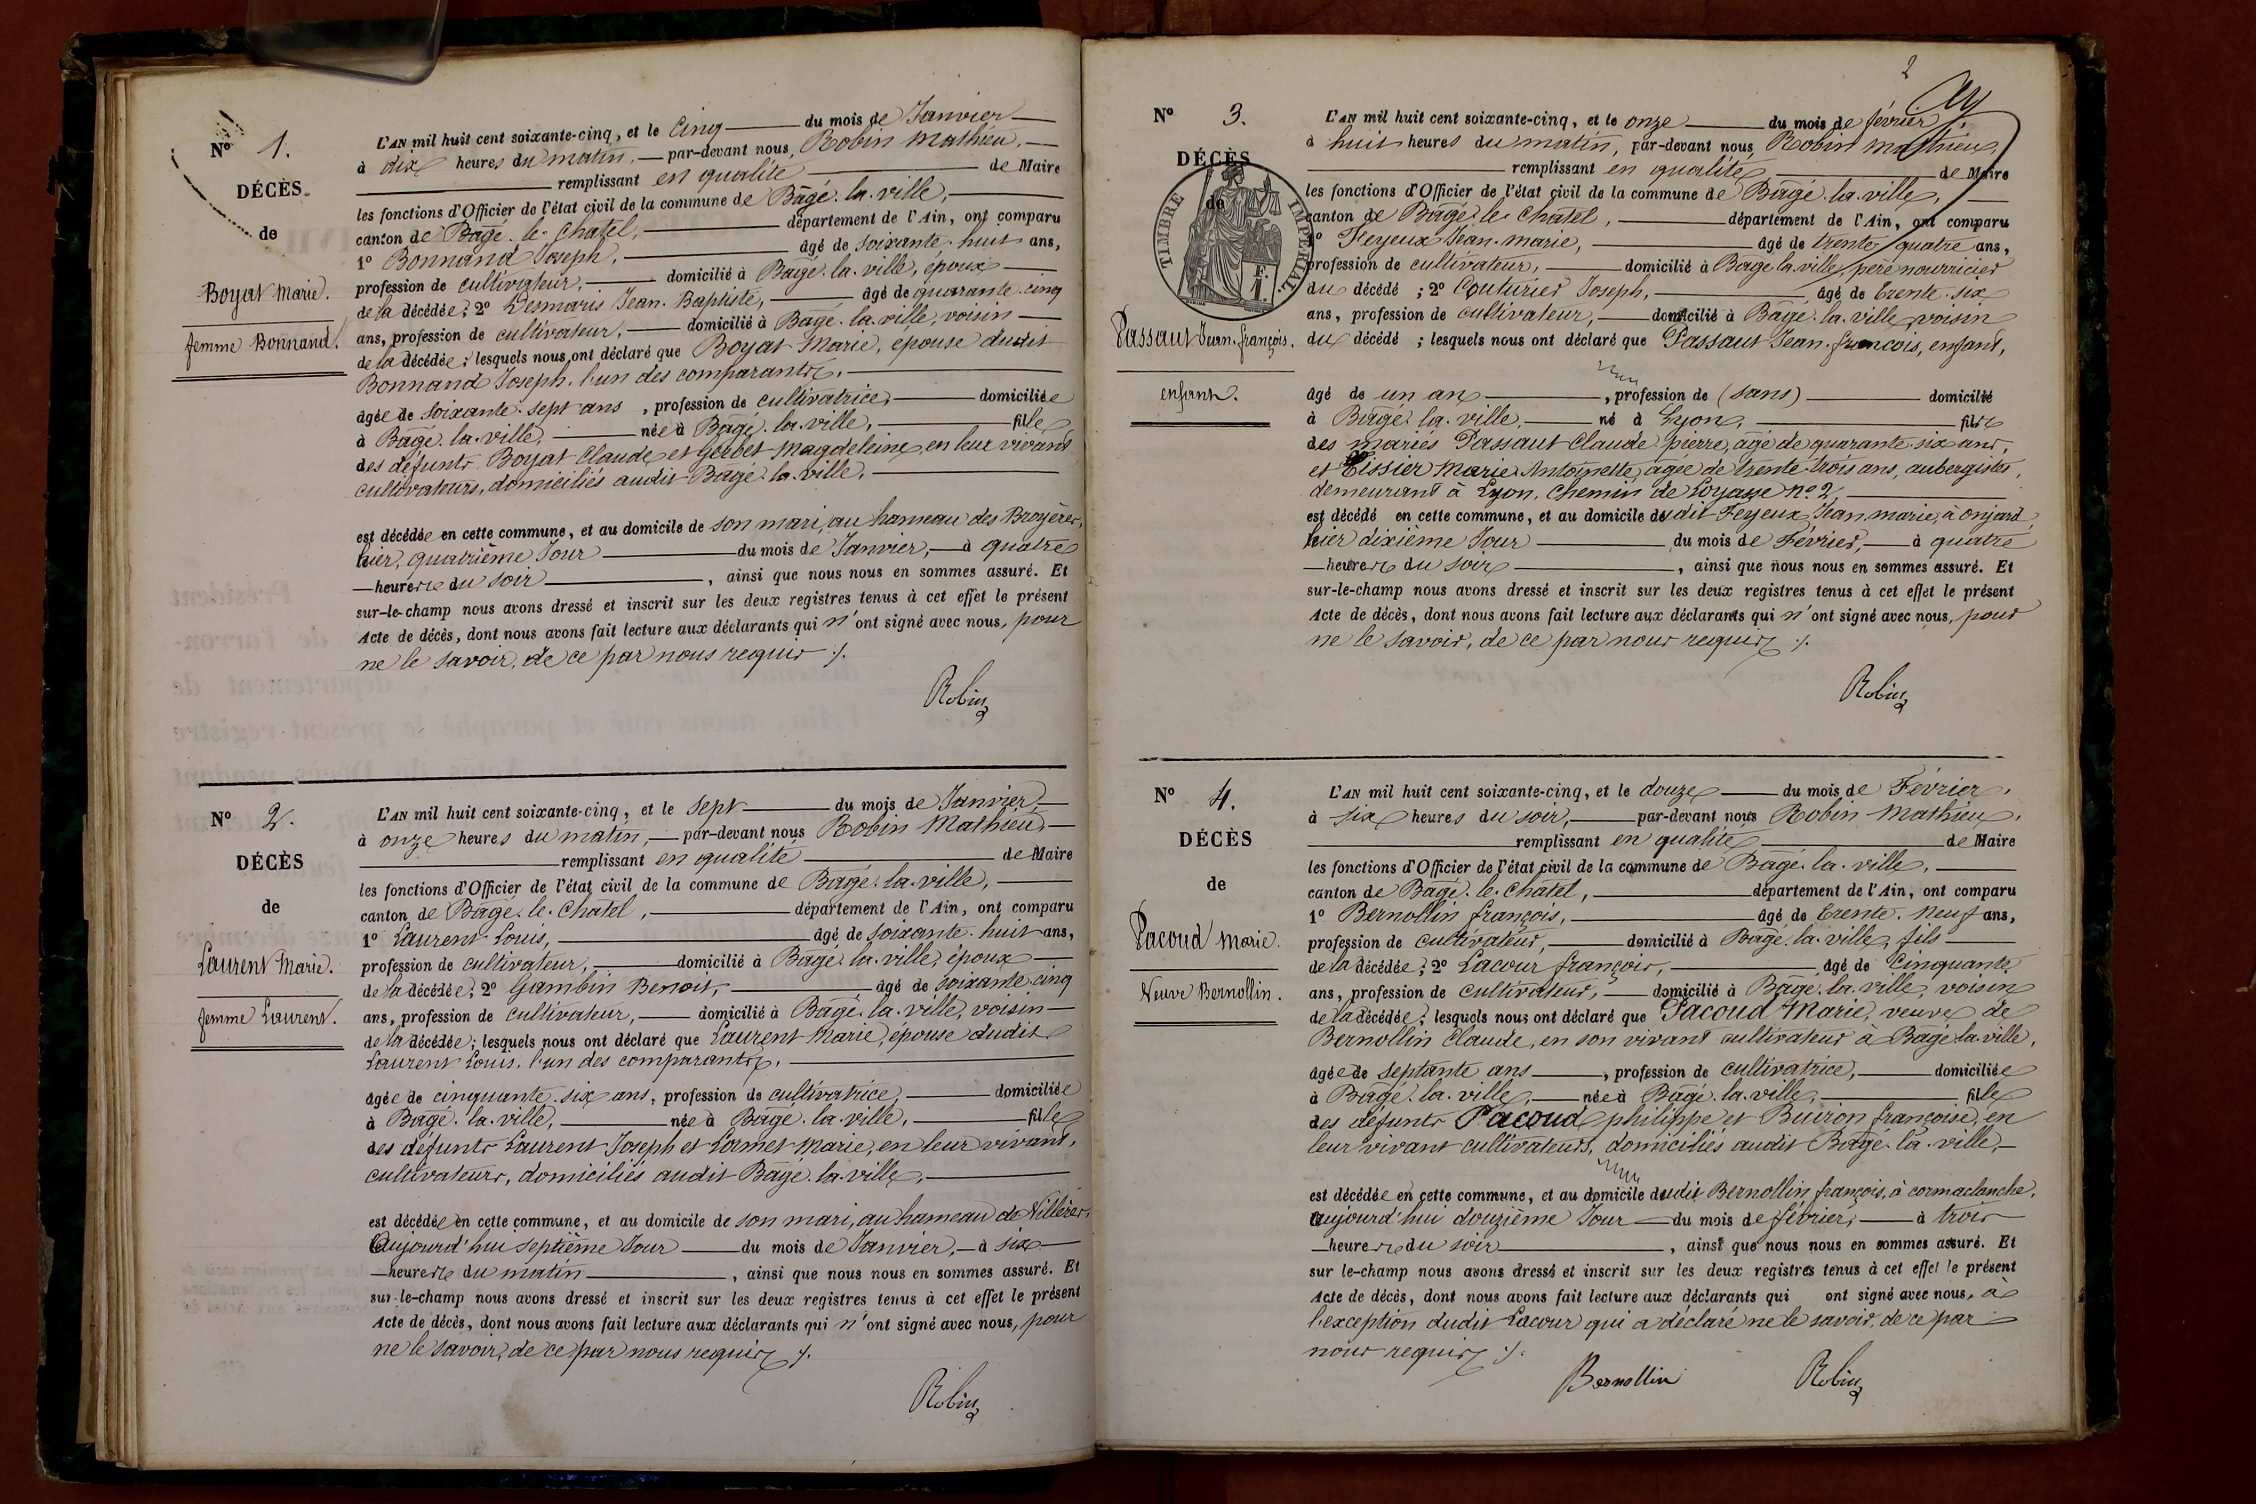 N° 1.
DÉCÈS
de
Boyat Marie.
femme Bonnand.
L'AN mil huit cent soixante-cinq, et le Cinq du mois de Janvier
à dix heures du matin, par-devant nous, Robin Mathieu,
remplissant en qualité de Maire
les fonctions d'Officier de l'état civil de la commune de Bâgé-la-ville,
canton de Bâgé-le-Châtel, département de l'Ain, ont comparu
1° Bonnand Joseph, âgé de soixante-huit ans,
profession de cultivateur, domicilié à Bâgé-la-ville, époux
de la décédée; 2° Desmaris Jean-Baptiste, âgé de quarante-cinq
ans, profession de cultivateur, domicilié à Bagé-la-ville, voisin
de la décédée; lesquels nous ont déclaré que Boyat Marie, épouse dudit
Bonnand Joseph, l'un des comparants,
âgée de soixante-sept ans, profession de cultivatrice, domiciliée
à Bâgé-la-ville, née à Bâgé-la-ville, fille
des défunts Boyat Claude et Gerbet Magdeleine, en leur vivant
cultivateurs, domiciliés audit Bâgé-la-ville,
est décédée en cette commune, et au domicile de son mari, au hameau des Broyères,
hier, quatrième Jour du mois de Janvier, à quatre
heures du soir, ainsi que nous nous en sommes assuré. Et
sur-le-champ nous avons dressé et inscrit sur les deux registres tenus à cet effet le présent
Acte de décès, dont nous avons fait lecture aux déclarants qui n'ont signé avec nous, pour
ne le savoir, de ce par nous requis ./.
Robin
N° 2.
DÉCÈS
de
Laurent Marie.
femme Laurent.
L'AN mil huit cent soixante-cinq, et le sept du mois de Janvier,
à onze heures du matin, par-devant nous Robin Mathieu,
remplissant en qualité de Maire
les fonctions d'Officier de l'état civil de la commune de Bâgé-la-ville,
canton de Bâgé-le-Châtel, département de l'Ain, ont comparu
1° Laurent Louis, âgé de soixante-huit ans,
profession de cultivateur, domicilié à Bagé-la-ville, époux
de la décédée; 2° Gambin Benoit, âgé de soixante-cinq
ans, profession de cultivateur, domicilié à Bâgé-la-ville, voisin
de la décédée; lesquels nous ont déclaré que Laurent Marie, épouse dudit
Laurent Louis, l'un des comparants,
âgée de cinquante-six ans, profession de cultivatrice, domiciliée
à Bagé-la-ville, née à Bâgé-la-ville, fille
des défunts Laurent Joseph et Lormet Marie, en leur vivant,
cultivateurs, domiciliés audit Bâgé-la-ville,
est décédée en cette commune, et au domicile de son mari, au hameau de Villères,
Aujourd'hui septième Jour du mois de Janvier, à six
heures du matin, ainsi que nous nous en sommes assuré. Et
sur-le-champ nous avons dressé et inscrit sur les deux registres tenus à cet effet le présent
Acte de décès, dont nous avons fait lecture aux déclarants qui n'ont signé avec nous, pour
ne le savoir, de ce par nous requis ./.
Robin
2
N° 3.
DÉCÈS
de
TIMBRE IMPÉRIAL
F.
1.
Passaut Jean-françois.
enfant.
L'AN mil huit cent soixante-cinq, et le onze du mois de février,
à huit heures du matin, par-devant nous Robin Mathieu,
remplissant en qualité de Maire
les fonctions d'Officier de l'état civil de la commune de Bâgé-la-ville,
canton de Bâgé-le-Châtel, département de l'Ain, ont comparu
1° Feyeux Jean-marie, âgé de trente-quatre ans,
profession de cultivateur, domicilié à Bâgé-la-ville, père nourricier
du décédé; 2° Couturier Joseph, âgé de Trente-six
ans, profession de cultivateur, domicilié à Bâgé-la-ville voisin
du décédé; lesquels nous ont déclaré que Passaut Jean-françois, enfant,
âgé de un an, profession de (sans) domicilié
à Bâgé-la-ville, né à Lyon, fils
des mariés Passaut Claude-pierre, âgé de quarante-six ans,
et Tissier Marie-Antoinette, âgée de trente-trois ans, aubergistes,
demeurant à Lyon, Chemin de Loyasse n° 2,
est décédé en cette commune, et au domicile dudit Feyeux Jean-marie, à onjard,
hier dixième Jour du mois de Février, à quatre
heures du soir, ainsi que nous nous en sommes assuré. Et
sur-le-champ nous avons dressé et inscrit sur les deux registres tenus à cet effet le présent
Acte de décès, dont nous avons fait lecture aux déclarants qui n'ont signé avec nous, pour
ne le savoir, de ce par nous requis ./.
Robin
N° 4.
DÉCÈS
de
Pacoud Marie.
Veuve Bernollin.
L'AN mil huit cent soixante-cinq, et le douze du mois de Février,
à six heures du soir, par-devant nous Robin Mathieu,
remplissant en qualité de Maire
les fonctions d'Officier de l'état civil de la commune de Bâgé-la-ville,
canton de Bâgé-le-Châtel, département de l'Ain, ont comparu
1° Bernollin françois, âgé de Trente-neuf ans,
profession de cultivateur, domicilié à Bâgé-la-ville, fils
de la décédée; 2° Lacour françois, âgé de Cinquante
ans, profession de cultivateur, domicilié à Bâgé-la-ville, voisin
de la décédée; lesquels nous ont déclaré que Pacoud Marie, veuve de
Bernollin Claude, en son vivant cultivateur à Bâgé-la-ville,
âgée de septante ans, profession de cultivatrice, domiciliée
à Bâgé-la-ville, née à Bâgé-la-ville, fille
des défunts Pacoud philippe et Buiron françoise, en
leur vivant cultivateurs, domiciliés audit Bâgé-la-ville,
est décédée en cette commune, et au domicile dudit Bernollin françois, à cormaclanche,
aujourd'hui douzième Jour du mois de février, à trois
heures du soir, ainsi que nous nous en sommes assuré. Et
sur le-champ nous avons dressé et inscrit sur les deux registres tenus à cet effet le présent
Acte de décès, dont nous avons fait lecture aux déclarants qui ont signé avec nous, à
l'exception dudit Lacour qui a déclaré ne le savoir, de ce par
nous requis ./.
Bernollin Robin